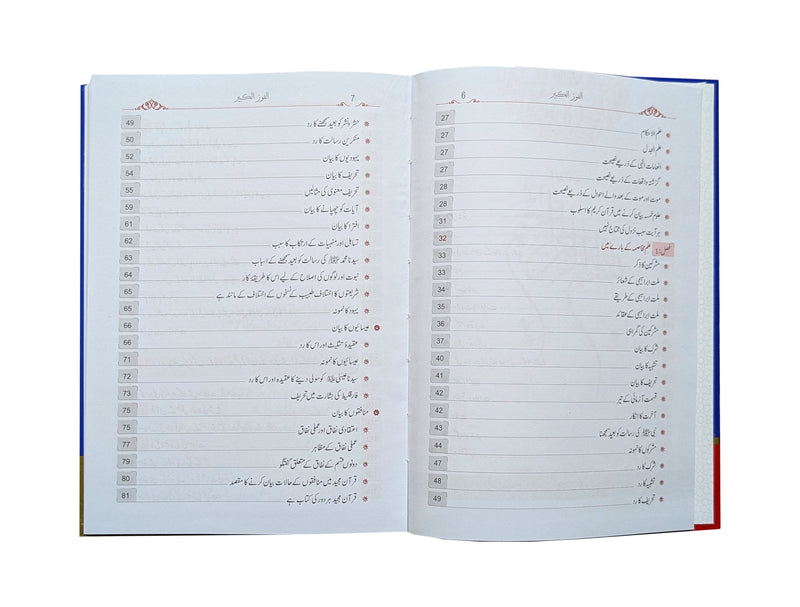 الفوز الکبیر 6
علم الاحکام 27
علم الجدل 27
انعامات الٰہی کے ذریعے نصیحت 27
گزشتہ واقعات کے ذریعے نصیحت 27
موت اور موت کے بعد والے احوال کے ذریعے نصیحت 28
علوم خمسہ بیان کرنے میں قرآن کریم کا اسلوب 28
ہر آیت سبب نزول کی محتاج نہیں 31
فصل:1 علم مخاصمہ کے بارے میں 32
مشرکین کا ذکر 33
ملت ابراہیمی کے شعائر 33
ملت ابراہیمی کے طریقے 35
ملت ابراہیمی کے عقائد 35
مشرکین کی گمراہی 36
شرک کا بیان 37
تشبیہ کا بیان 40
تحریف کا بیان 41
قسمت آزمائی کے تیر 42
آخرت کا انکار 42
نبی ﷺ کی رسالت کو بعید سمجھنا 43
مشرکوں کا نمونہ 44
شرک کا رد 47
تشبیہ کا رد 48
تحریف کا رد 49
الفوز الکبیر 7
حشر و نشر کو بعید سمجھنے کا رد 49
منکرین رسالت کا رد 50
یہودیوں کا بیان 52
تحریف کا بیان 54
تحریف معنوی کی مثالیں 55
آیات کو چھپانے کا بیان 59
افترا کا بیان 61
تساہل اور منہیات کے ارتکاب کا سبب 62
سیدنا محمد ﷺ کی رسالت کو بعید سمجھنے کے اسباب 63
نبوت اور لوگوں کی اصلاح کے لیے اس کا طریقۂ کار 64
شریعتوں کا اختلاف طبیب کے نسخوں کے اختلاف کے مانند ہے 65
یہود کا نمونہ 65
عیسائیوں کا بیان 66
عقیدۂ تثلیث اور اس کا رد 66
عیسائیوں کا نمونہ 71
سیدنا عیسیٰ علیہ السلام کو سولی دینے کا عقیدہ اور اس کا رد 72
فارقلیط کی بشارت میں تحریف 73
منافقوں کا بیان 75
اعتقادی نفاق اور عملی نفاق 75
عملی نفاق کے مظاہر 77
دونوں قسم کے نفاق کے متعلق گفتگو 79
قرآن مجید میں منافقوں کے حالات بیان کرنے کا مقصد 80
قرآن مجید ہر دور کی کتاب ہے 81